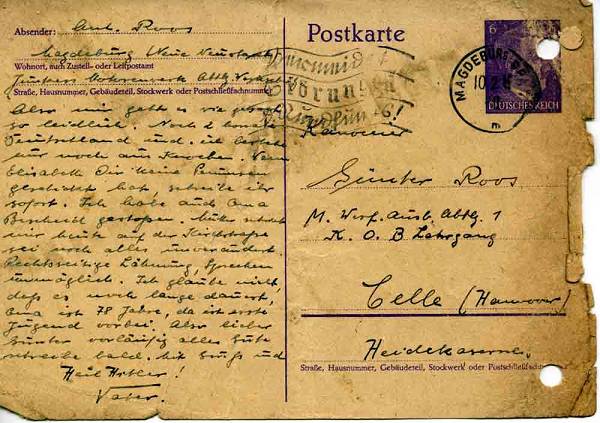 Absender: Ant. Roos
Magdeburg Neue Neustadt
Wohnort, auch Zustell- oder Leitpostamt
Junkers Werk Abtlg.
Straße, Hausnummer, Gebäudeteil, Stockwerk oder Postschließfachnummer
Also mir geht es wie gesagt
so leidlich. Noch 2 Monate
Deutschland und ich bestehe
nur noch aus Knochen. Wenn
Elisabeth Dir keine
geschickt hat, schreibe ihr
sofort. Ich habe auch Oma
Bescheid gestoßen. Mutter schreibt
mir heute auf der Kirchstraße
sei noch alles unverändert.
Rechtsseitige Lähmung, Sprechen
unmöglich. Ich glaube nicht,
daß es noch lange dauert,
Oma ist 78 Jahre, da ist erste
Jugend vorbei. Also lieber
Günter vorläufig alles Gute
schreibe bald. Mit Gruß und
Heil Hitler!
Vater.
Postkarte
Rundfunk
6
MAGDEBURG
10.2.
m
DEUTSCHES REICH
Kanonier
Günter Roos
M. Werf. Ausb. Abtlg. 1
K. O. B Lehrgang
Celle (Hannover)
Heidekaserne
Straße, Hausnummer, Gebäudeteil, Stockwerk oder Postschließfachnummer